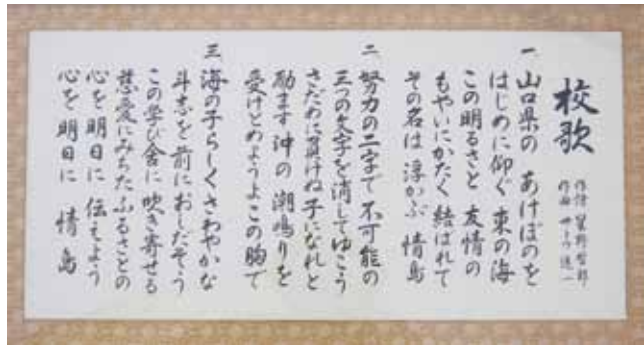 校歌
作詩 星野哲郎
作曲
一 山口県の あけぼのを
はじめに仰ぐ 東の海
この明るさと 友情の
もやいにかたく 結ばれて
その名は 浮かぶ 情島
二 努力の二字で 不可能の
三つの文字を 消してゆこう
さだめに負けぬ 子になれと
励ます 沖の 潮鳴りを
受けとめようよ この胸で
三 海の子らしく さわやかな
斗志を前に おしだそう
この学び舎に 吹き寄せる
慈愛にみちた ふるさとの
心を 明日に 伝えよう
心を 明日に 情島